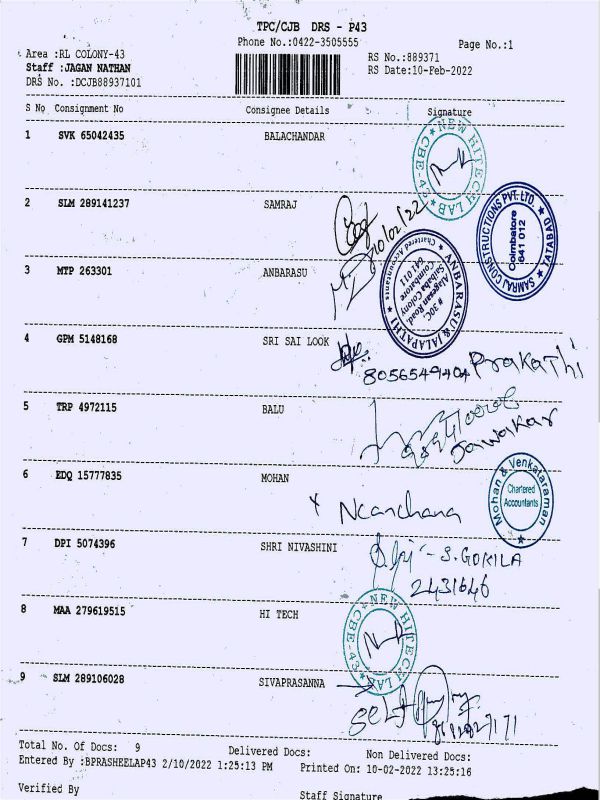 TPC/CJB DRS - P43
Phone No.:0422-3505555
Page No.:1
Area :RL COLONY-43
Staff :JAGAN NATHAN
DRS No. :DCJB88937101
RS No.:889371
RS Date:10-Feb-2022
S No Consignment No Consignee Details Signature
1 SVK 65042435 BALACHANDAR
NEW HITECH LAB
CBE-43
2 SLM 289141237 SAMRAJ
10/02/22
SAMRAJ CONSTRUCTIONS PVT. LTD. TATABAD
Coimbatore
641 012
3 MTP 263301 ANBARASU
ANBARASU & JALAPATHI
Chartered Accountants
# 30C,
Alagesan Road,
Saibaba Colony
Coimbatore
641 011
4 GPM 5148168 SRI SAI LOOK
8056549404 Prakathi
5 TRP 4972115 BALU
Jawakar
6 EDQ 15777835 MOHAN
Ncanchana
Mohan & Venkataraman
Chartered
Accountants
7 DPI 5074396 SHRI NIVASHINI
S. GOKILA
2431646
8 MAA 279619515 HI TECH
NEW HITECH LAB
CBE-43
9 SLM 289106028 SIVAPRASANNA
Self
Total No. Of Docs: 9 Delivered Docs: Non Delivered Docs:
Entered By :BPRASHEELAP43 2/10/2022 1:25:13 PM Printed On: 10-02-2022 13:25:16
Verified By Staff Signature